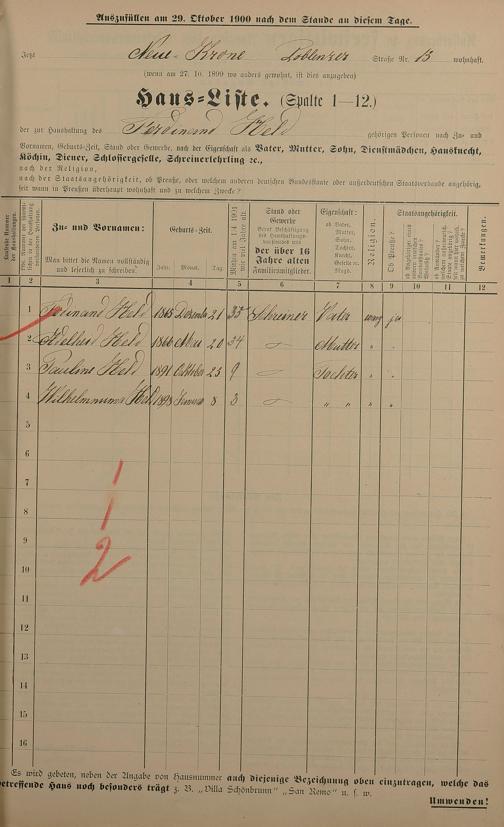 Auszufüllen am 29. Oktober 1900 nach dem Stande an diesem Tage.
Jetzt Neue Krone Coblenzer Straße Nr. 13 wohnhaft.
(wenn am 27. 10. 1899 wo anders gewohnt, ist dies anzugeben)
Haus-Liste. (Spalte 1—12.)
der zur Haushaltung des Ferdinand Held gehörigen Personen nach Zu- und
Vornamen, Geburts-Zeit, Stand oder Gewerbe, nach der Eigenschaft als Vater, Mutter, Sohn, Dienstmädchen, Hausknecht,
Köchin, Diener, Schlossergeselle, Schreinerlehrling ꝛc.,
nach der Religion,
nach der Staatsangehörigkeit, ob Preuße, oder welchem anderen deutschen Bundesstaate oder außerdeutschen Staatsverbande angehörig,
seit wann in Preußen überhaupt wohnhaft und zu welchem Zwecke?
Zu- und Vornamen: Geburts-Zeit. Stand oder Gewerbe Eigenschaft: Religion. Staatsangehörigkeit. Bemerkungen.
Man bittet die Namen vollständig und leserlich zu schreiben. Jahr. Monat. Tag. der über 16 Jahre alten Familienmitglieder. ob Vater, Mutter, Sohn, Tochter, Knecht, Geselle ꝛc. Magd. Ob Preuße?
1 2 3 4 5 6 7 8 9 10 11 12
1 Ferdinand Held 1865 Dezember 21 35 Schreiner Vater evang
2 Adelheid Held 1866 Mai 20 34 Mutter " "
3 Pauline Held 1891 Oktober 23 9 Tochter " "
4 1898 Januar 8 3 " " " "
5
6
7
8
9
10
11
12
13
14
15
16
1
1
2
Es wird gebeten, neben der Angabe von Hausnummer auch diejenige Bezeichnung oben einzutragen, welche das
betreffende Haus noch besonders trägt z. B. „Villa Schönbrunn" „San Remo" u. s. w.
Umwenden!